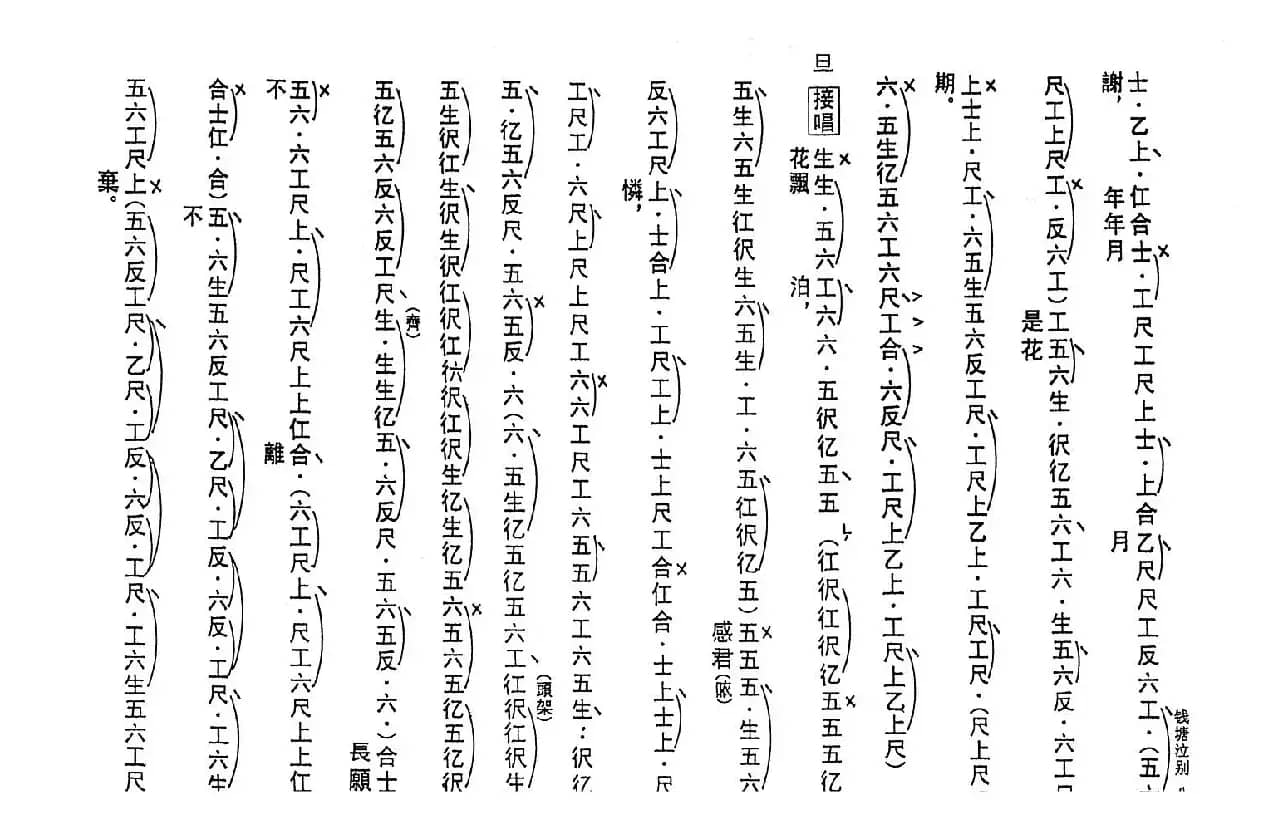 钱塘泣别
士·乙上、·仜合士·工尺工尺上士、·上合乙、尺尺工反六工、·(五
謝，年年月月
尺工上尺工·反六工)工五、六生·彳尺彳乙五六、工六·生五、六反·六工尺
是花
上士上·尺工、·六五生五六反工尺、·工尺上乙上·工尺、工尺·(尺上尺
期。
六·五生亿五六工六尺、工合·六反尺、·工尺上乙上·工尺、上乙上尺)
旦 接唱 生生·五六工、六六·五伬亿五、五(仜伬仜伬亿五五五亿
花飄泊，
五、生六五生仜伬生六、五生·工·六五、仜伬亿五)五五五、·生五六
感君
反六工尺上、·士合上·工尺、工上·士上尺工合仜合·士上、士上·尺
憐，
工、尺工·六尺、上尺上尺工六六工尺工六五、五六工六五生、:伬亿
五、·亿五六反尺·五六五反·六(六、·五生亿五亿五六工、仜伬仜伬生
(頭架)
五生伬仜生、伬生伬仜伬仜㐳伬仜伬生亿生亿五六五六五亿五亿伬
五亿五六反六反工尺、生·生生亿五、·六反尺·五六、五反·六·)合士
(齊) 長願
五六·六工尺上、·尺工六尺上上仜合、·(六工尺上、·尺工六尺上上仜
不離
合士仜·合)五、·六生五六反工尺、·乙尺·工反·六反·工尺、·工六生
不
五六工尺上(五六反工尺、·乙尺·工反·六反·工尺、·工六生五六工尺
棄。